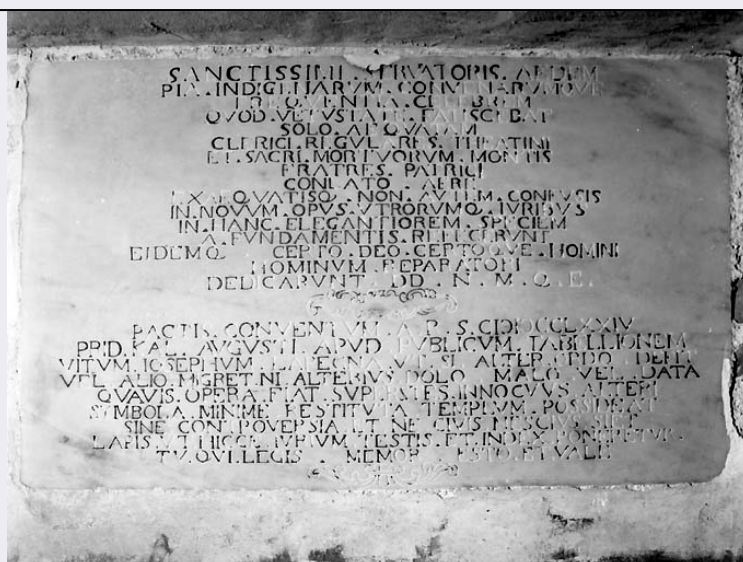 SANCTISSIMI . SERVATOPIS . AEDEM
PIA . INDIGENARVM . CONVENARVMQVE
FREQVENTIA . CELEBREM
QVOD . VETVSTATE . FATISCEBAT
SOLO . AEQVATAM
CLERICI . REGVLARES . THEATINI
ET . SACRI . MORTVORVM . MONTIS
FRATRES . PATRICI
CONLATO . AERE
EXAEQVATISQ . NON . AVTEM . CONFVSIS
IN . NOVVM . OPVS . VTRORVMQ . IVRIBVS
IN . HANC . ELEGANTIOREM . SPECIEM
A . FVNDAMENTIS . REFECERVNT
EIDEMQ CEPTO . DEO . CEPTOQVE . HOMINI
HOMINVM . REPARATORI
DEDICARVNT . DD . N . M . Q . E .
PACTIS . CONVENTVM . A . R . S . CIƆIƆCCLXXIV
PRID . KAL . AVGVSTI . APVD . PVBLICVM . TABELLIONEM
VITVM . IOSEPHVM . VT . SI . ALTER . ORDO
VEL . ALIO . MIGRET . NI . ALTERIVS . DOLO . MALO . VEL . DATA
QVAVIS . OPERA . FIAT . SVPERSTES . INNOCVVS . ALTERI
SYMBOLA . MINIME . RESTITVTA . TEMPLVM . POSSIDEAT
SINE . CONTROVERSIA . ET . NE . CIVIS . NESCIVS . SIET
LAPIS . VT . HICCE . IVRIVM . TESTIS . ET . INDEX . PONERETVR
TV . QVI . LEGIS . MEMOR . ESTO . ET . VALE